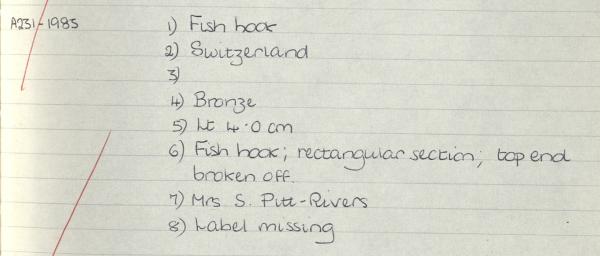 A231-1985 1) Fish hook
2) Switzerland
3)
4) Bronze
5) Lt 4.0 cm
6) Fish hook; rectangular section; top end
broken off.
7) Mrs S. Pitt-Rivers
8) Label missing